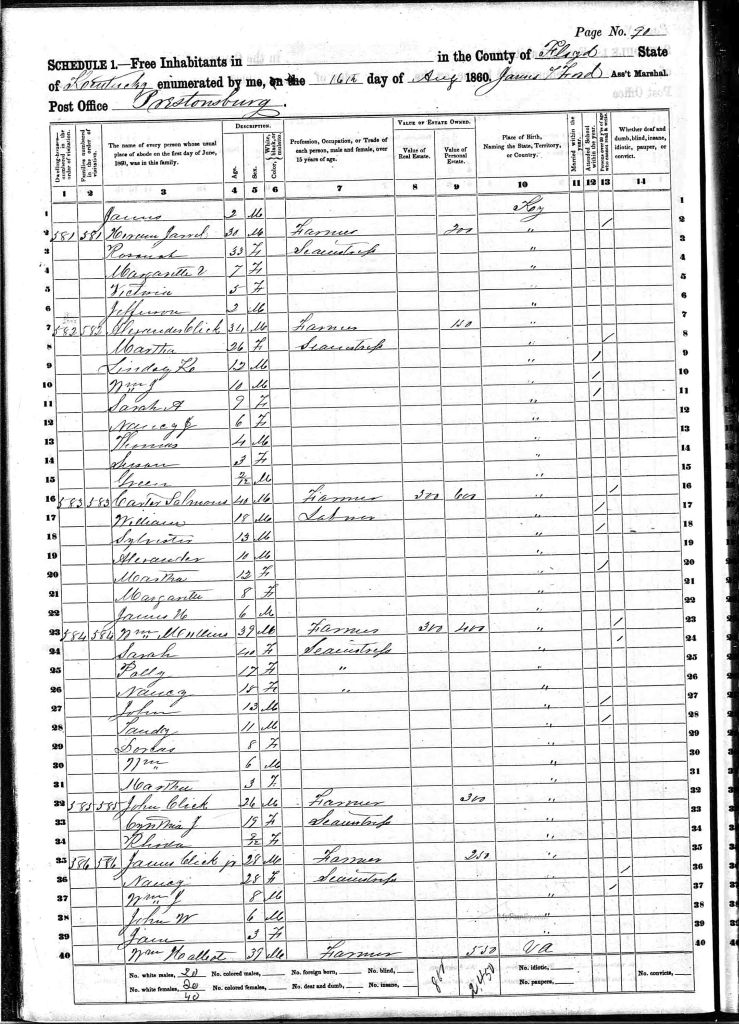 Page No. 90
SCHEDULE 1.—Free Inhabitants in in the County of Floyd State
of Kentucky enumerated by me, on the 16th day of Aug 1860. Ass't Marshal.
Post Office Prestonsburg.
Dwelling-houses numbered in the order of visitation.
Families numbered in the order of visitation.
The name of every person whose usual place of abode on the first day of June, 1860, was in this family.
DESCRIPTION.
Age.
Sex.
Color, White, black, or mulatto.
Profession, Occupation, or Trade of each person, male and female, over 15 years of age.
VALUE OF ESTATE OWNED.
Value of Real Estate.
Value of Personal Estate.
Place of Birth, Naming the State, Territory, or Country.
Married within the year.
Attended School within the year.
Whether deaf and dumb, blind, insane, idiotic, pauper, or convict.
1 2 3 4 5 6 7 8 9 10 11 12 13 14
1 James 2 M Ky 1
2 581 581 Hiram Jarrel 30 M Farmer 200 " / 2
3 33 F Seamstress " 3
4 Margarette V 7 F " 4
5 Victoria 5 F " 5
6 Jefferson 2 M " 6
7 582 582 Alexander Click 34 M Farmer 150 " 7
8 Martha 26 F Seamstress " / 8
9 Lindsy K 12 M " / 9
10 Wm J 10 M " / 10
11 Sarah A 9 F " / 11
12 Nancy J 6 F " 12
13 Thomas 4 M " 13
14 Susan 3 F " 14
15 Green 2/12 M " 15
16 583 583 Carter Salmons 40 M Farmer 300 600 " / 16
17 William 18 M Laborer " / 17
18 Sylvester 13 M " / 18
19 Alexander 10 M " 19
20 Martha 12 F " / 20
21 Margarette 8 F " 21
22 James H 6 M " 22
23 584 584 Wm Mullins 39 M Farmer 300 400 " / 23
24 Sarah 40 F Seamstress " / 24
25 Polly 17 F " " 25
26 Nancy 15 F " " 26
27 John 13 M " / 27
28 Tandy 11 M " / 28
29 Dorcas 8 F " 29
30 Wm 6 M " 30
31 Martha 3 F " 31
32 585 585 John Click 26 M Farmer 300 " 32
33 Cynthia J 19 F Seamstress " 33
34 Rhoda 2/12 F " 34
35 586 586 James Click jr 28 M Farmer 250 " 35
36 Nancy 28 F Seamstress " / 36
37 Wm J 8 M " / 37
38 John W 6 M " 38
39 Jane 3 F " 39
40 Wm Halbert 39 M Farmer 550 VA 40
No. white males, 20 No. colored males, No. foreign born, No. blind, No. idiotic, No. convicts,
No. white females, 20 No. colored females, No. deaf and dumb, No. insane, 2450 No. paupers,
40